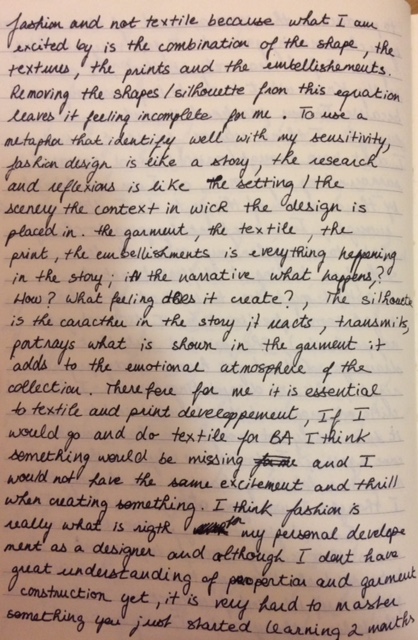 fashion and not textile because what I am
excited by is the combination of the shape, the
textures, the prints and the embellishements.
Removing the shapes/silhouette from this equation
leaves it feeling incomplete for me. To use a
metaphor that identify well with my sensitivity,
fashion design is like a story, the research
and reflexions is like the setting/the
scenery the context in wick the design is
placed in. the garment, the textile, the
print, the embellishments is everything happening
in the story; it the narrative what happens?
How? What feeling does it create?, The silhouette
is the caracther in the story it reacts, transmits,
portrays what is shown in the garment it
adds to the emotional atmosphere of the
collection. Therefore for me it is essential
to textile and print developpement, If I
would go and do textile for BA I think
something would be missing and I
would not have the same excitement and thrill
when creating something. I think fashion is
really what is rigth for my personal develope
ment as a designer and although I dont have
great understanding of proportion and garment
construction yet, it is very hard to master
something you just started learning 2 months